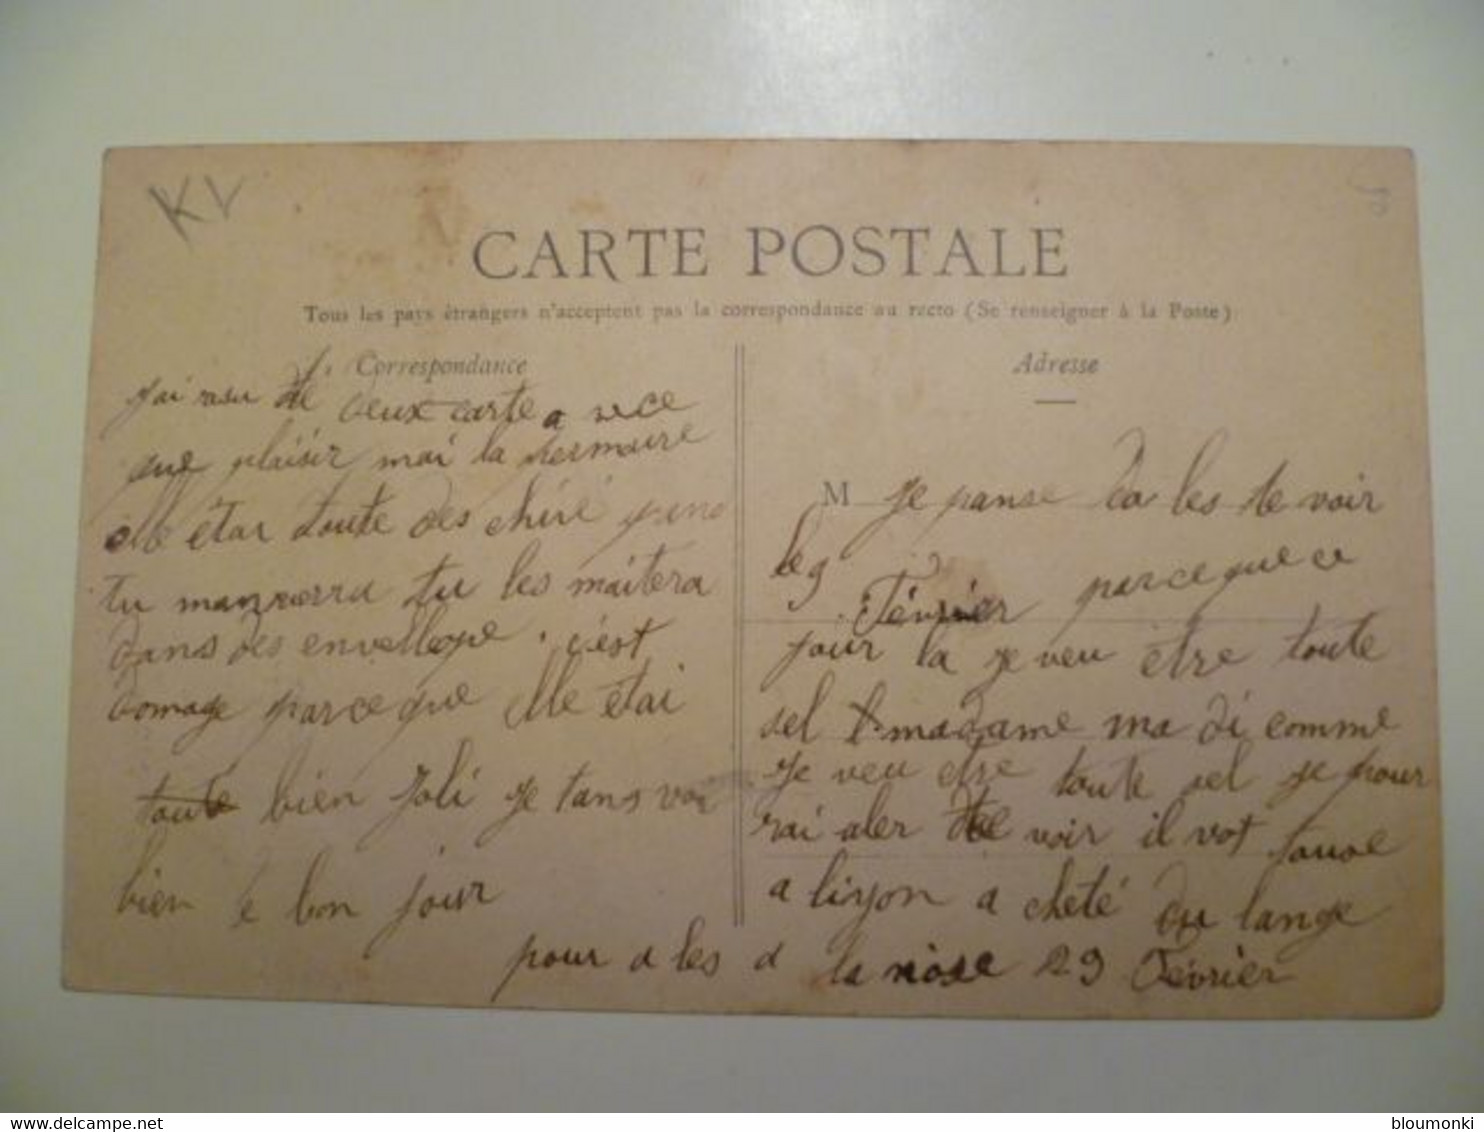 KV
CARTE POSTALE
Tous les pays étrangers n'acceptent pas la correspondance au recto (Se renseigner à la Poste)
Correspondance
j'ai rasu té deux carte a vece
que plaisir mai la permaire
elle étai toute des chiré quend
tu manverra tu les maitera
dans des envellope. c'est
domage parce que elle étai
toute bien joli je tans voi
bien le bon jour
Adresse
M je panse da les te voir
le 9 Février parce que ce
jour la je veu etre toute
sel madame ma di comme
je veu etre toute sel je pour
rai aler te voir il vot
a liyon a cheté du lange
pour a les a la nose 29 Février
www.delcampe.net
bloumonki